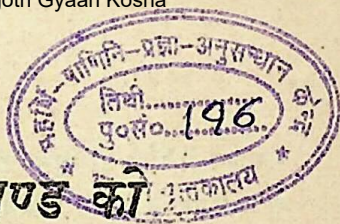 Gyaan Kosha
महर्षि-पाणिनि-प्रज्ञा-अनुसन्धान केन्द्र
तिथी..............
पु०सं०... 196
पुस्तकालय
को